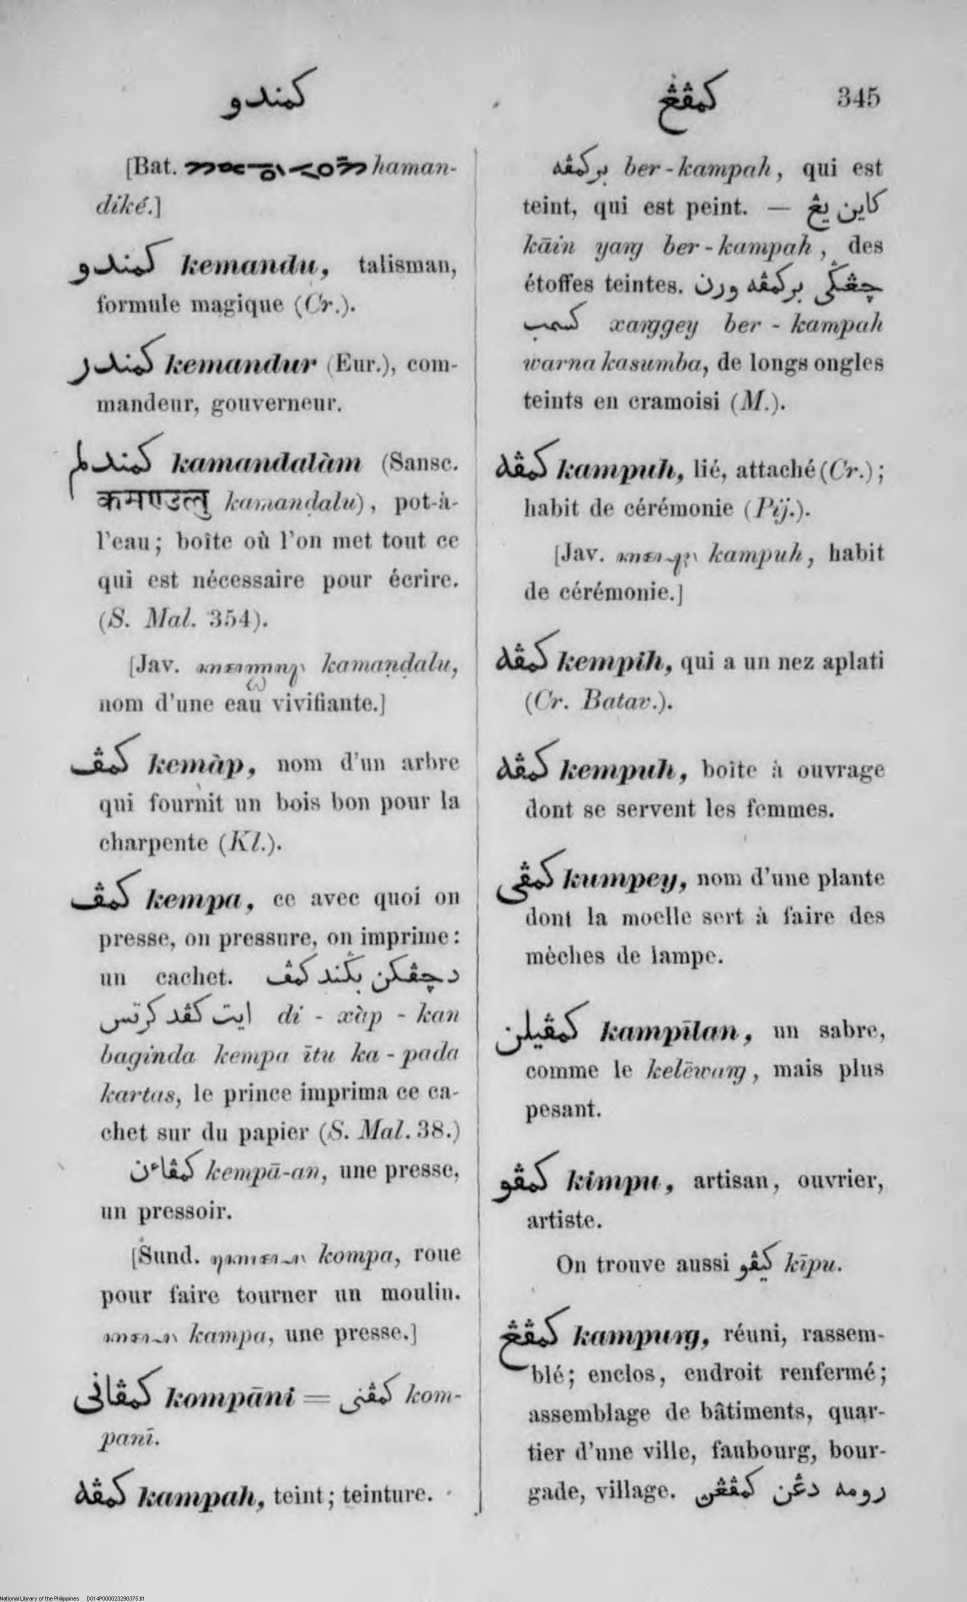 کمندو
کمڤڠ
345
[Bat. haman-
diké.]
کمندو kemandu, talisman,
formule magique (Cr.).
کمندر kemandur (Eur.), com-
mandeur, gouverneur.
کمندلم kamandalàm (Sansc.
कमण्डलु kamaṇḍalu), pot-à-
l'eau; boîte où l'on met tout ce
qui est nécessaire pour écrire.
(S. Mal. 354).
[Jav. kamaṇḍalu,
nom d'une eau vivifiante.]
کمڤ kemàp, nom d'un arbre
qui fournit un bois bon pour la
charpente (Kl.).
کمڤ kempa, ce avec quoi on
presse, on pressure, on imprime:
un cachet. دچڤکن بگند کمڤ
ايت کڤد کرتس di-xàp-kan
baginda kempa ītu ka-pada
kartas, le prince imprima ce ca-
chet sur du papier (S. Mal. 38.)
کمڤاءن kempā-an, une presse,
un pressoir.
[Sund. kompa, roue
pour faire tourner un moulin.
kampa, une presse.]
کمڤانی kompāni = کمڤنی kom-
panī.
کمڤه kampah, teint; teinture.
برکمڤه ber-kampah, qui est
teint, qui est peint. — کاين يڠ
kāin yang ber-kampah, des
étoffes teintes. چڠکی برکمڤه ورن
کسمب xanggey ber-kampah
warna kasumba, de longs ongles
teints en cramoisi (M.).
کمڤه kampuh, lié, attaché (Cr.);
habit de cérémonie (Pij.).
[Jav. kampuh, habit
de cérémonie.]
کمڤه kempih, qui a un nez aplati
(Cr. Batav.).
کمڤه kempuh, boîte à ouvrage
dont se servent les femmes.
کمڤی kumpey, nom d'une plante
dont la moelle sert à faire des
mèches de lampe.
کمڤيلن kampīlan, un sabre,
comme le kelēwang, mais plus
pesant.
کمڤو kimpu, artisan, ouvrier,
artiste.
On trouve aussi کيڤو kīpu.
کمڤڠ kampung, réuni, rassem-
blé; enclos, endroit renfermé;
assemblage de bâtiments, quar-
tier d'une ville, faubourg, bour-
gade, village. رومه دڠن کمڤڠن
National Library of the Philippines